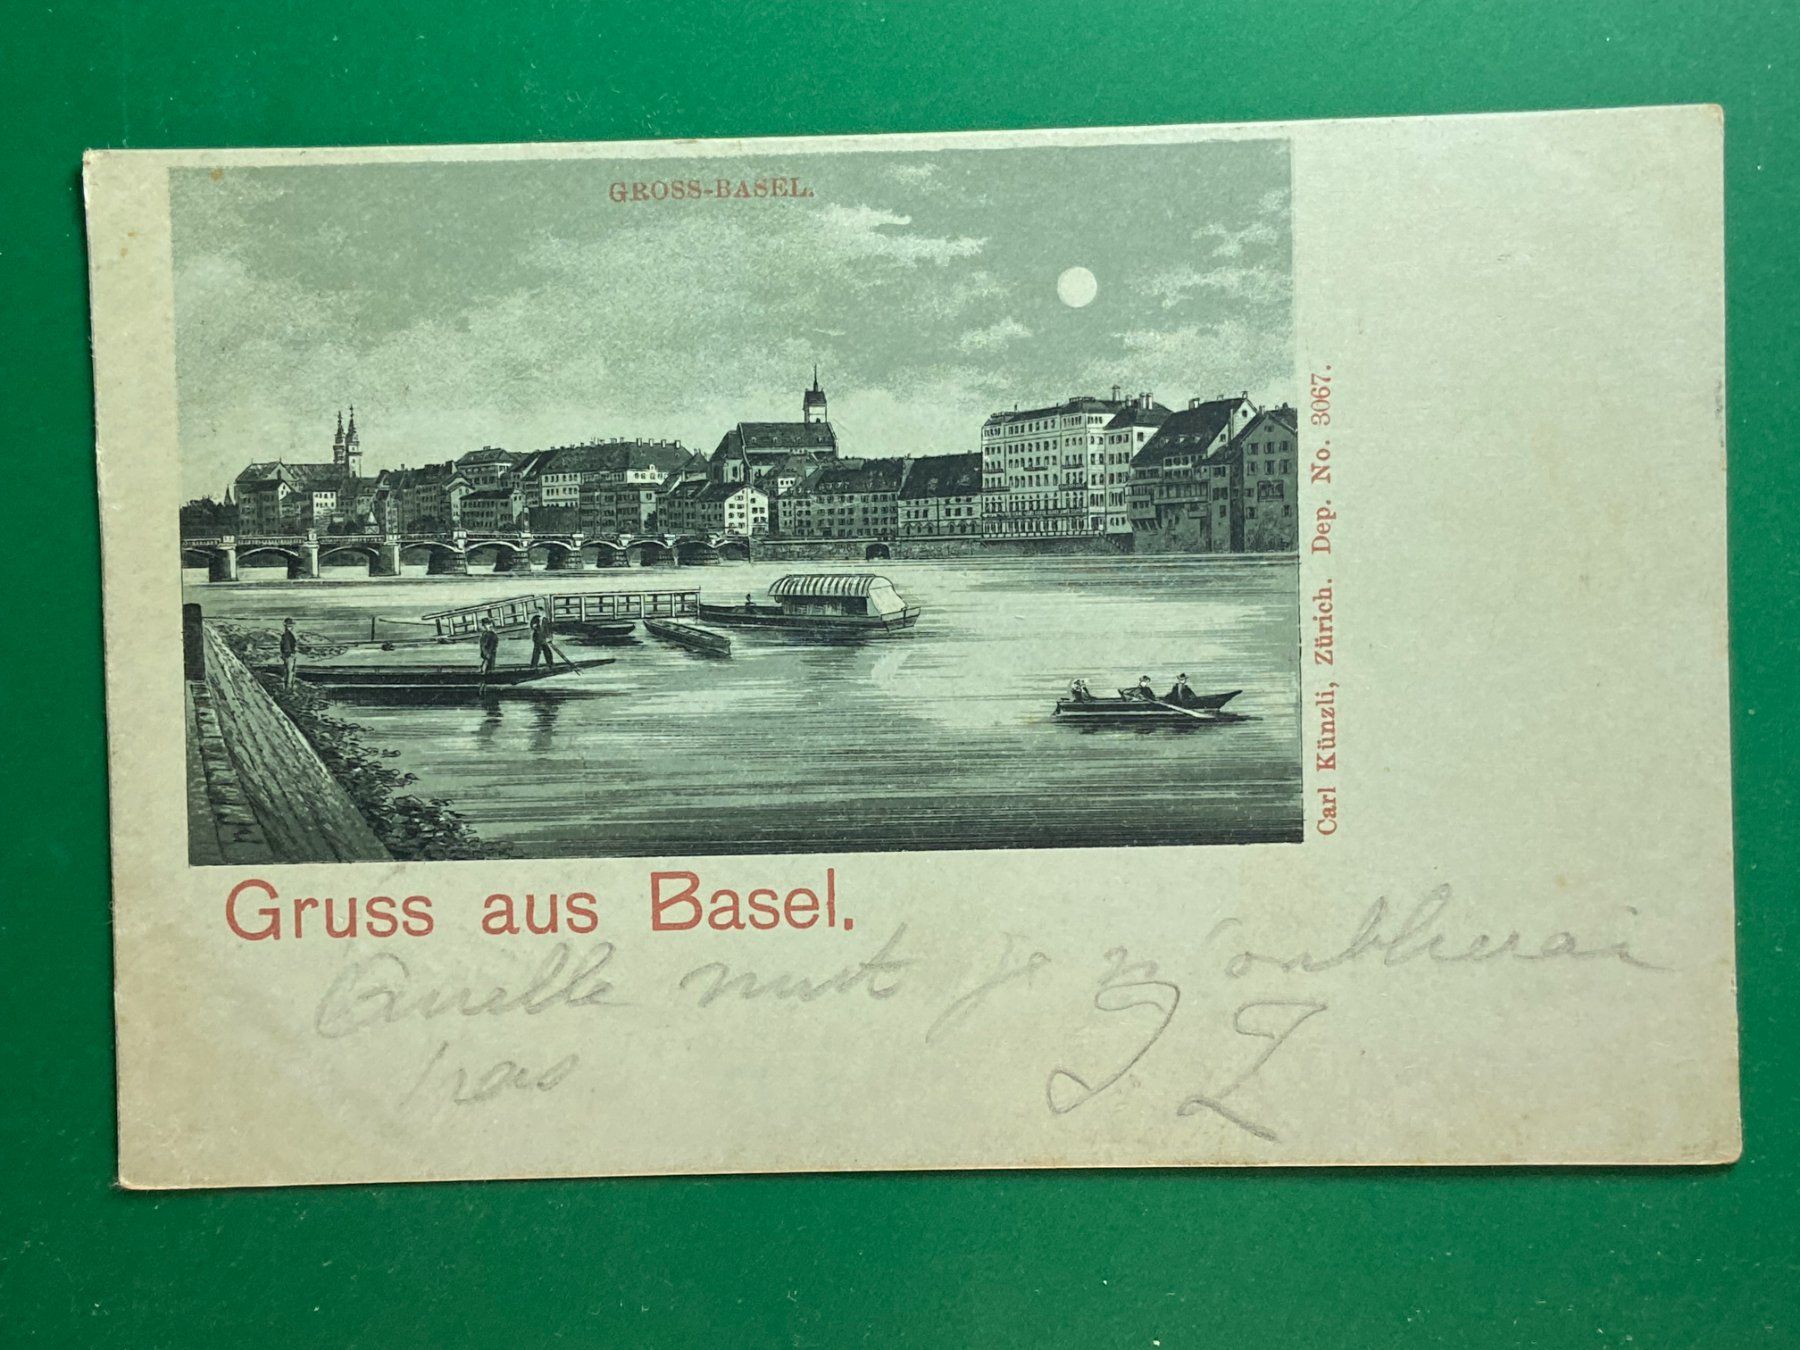 GROSS-BASEL.
Carl Künzli, Zürich. Dep. No. 3067.
Gruss aus Basel.
Quelle nuit je n'oublierai
pas